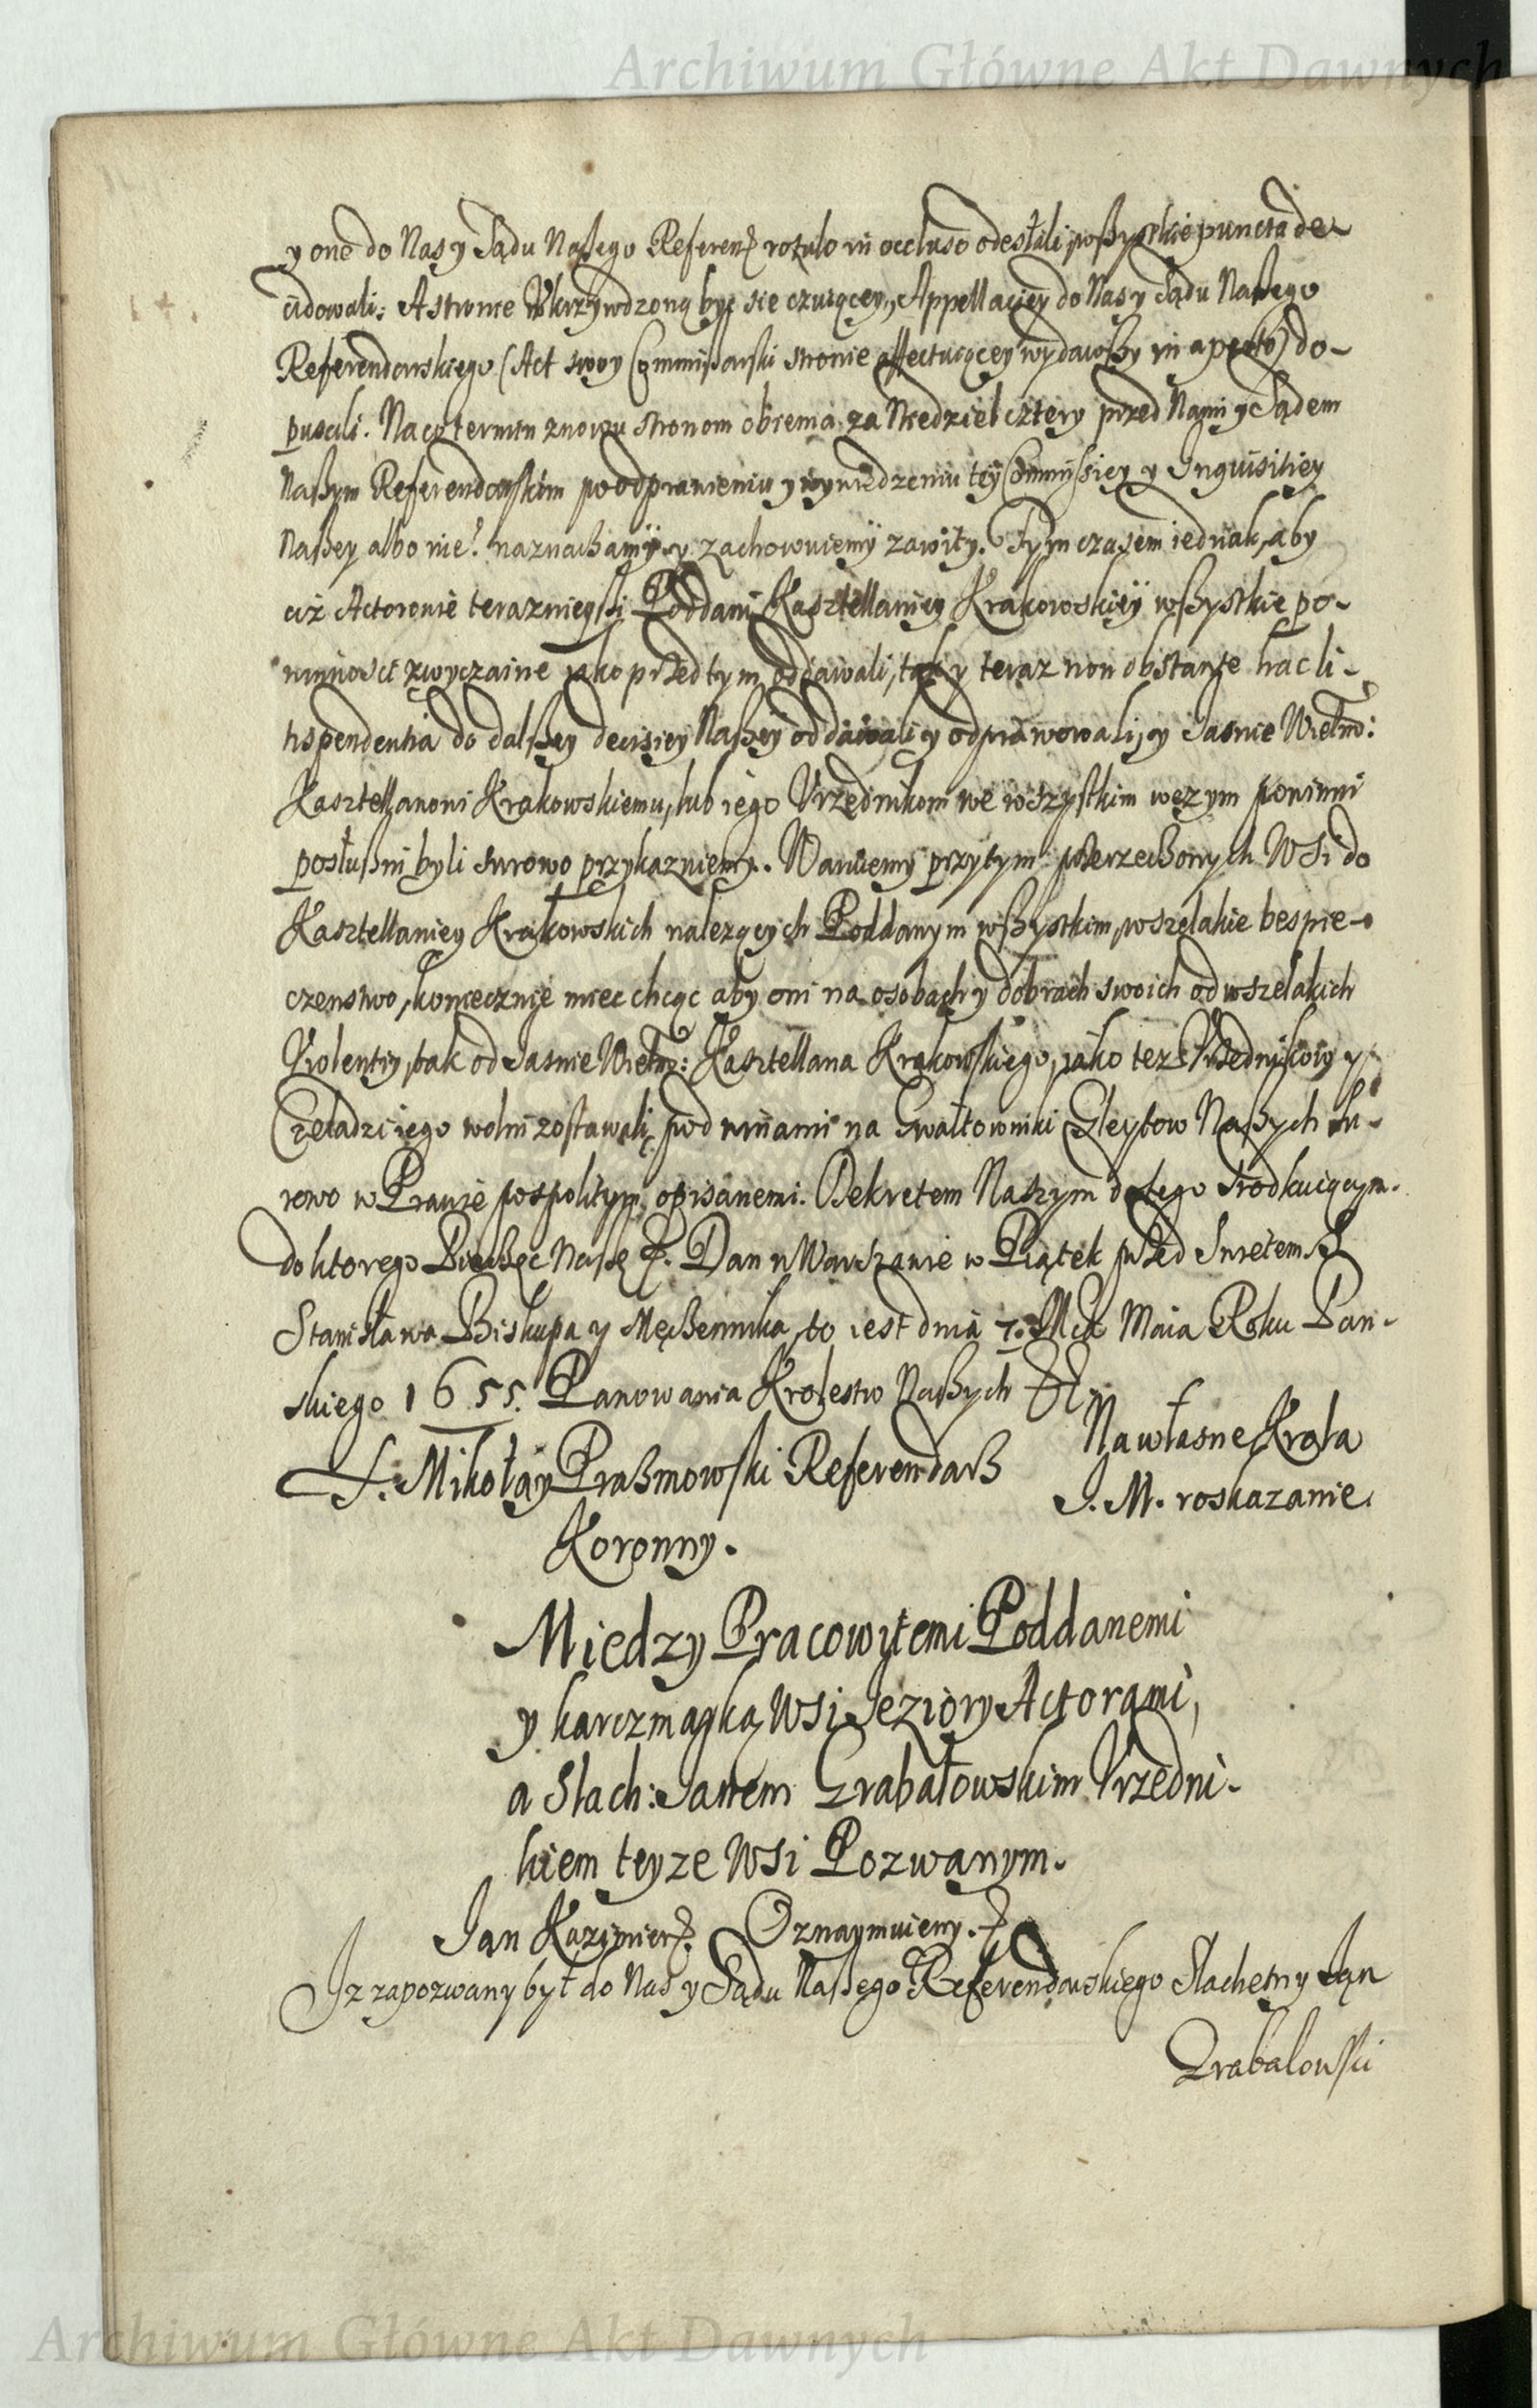 Archiwum Główne Akt Dawnych
y one do Nas y Sądu Naszego Referen. rotulo in occluso odesłali, wszystkie puncta de-
cidowali: A stronie Ukrzywdzoną być sie czuiącey, Appellaciey do Nas y Sądu Naszego
Referendarskiego (Act swoy Commissarski stronie affectuiącey wydawszy in aperto) do-
puscili. Na co termin znowu stronom obiema za Niedziel cztery przed Nami y Sądem
Naszym Referendarskim po odprawieniu y wywiedzeniu tey Commissiey y Inquisitiey
Naszey albo nie? naznaczamy y zachowuiemy zawity. Tym czasem iednak, aby
ciż Actorowie teraznieyszi Poddani Kasztellaniey Krakowskiey wszystkie po-
winności zwyczaine jako przedtym oddawali, tak y teraz non obstante hac li-
tispendentia do dalszey decisiey Naszey oddawali y odprawowali, y Jasnie Wielm:
Kasztellanowi Krakowskiemu, lub iego Urzędnikom we wszystkim wczym powinni
posłuszni byli surowo przykazuiemy. Waruiemy przytym pomienionych Wsi do
Kasztellaniey Krakowskich nalezących Poddanym wszystkim, wszelakie bespie-
czenstwo, koniecznie miec chcąc aby oni na osobach y dobrach swoich od wszelakich
Violentiy, tak od Jasnie Wielm: Kasztellana Krakowskiego, jako tez Urzędnikow y
Czeladzi iego wolni zostawali, pod winami na Gwałtowniki Gleytow Naszych su-
rowo w Prawie pospolitym opisanemi. Dekretem Naszym do tego srodkuiącym.
do ktorego Pieczęc Naszę &. Dan w Warszawie w Piątek przed Swietem S
Stanisława Biskupa y Męczennika, to iest dnia 7. Mca Maia Roku Pan-
skiego 1655. Panowania Krolestw Naszych &c
Na własne Krola
J. M. roskazanie.
X. Mikołay Prazmowski Referendarz
Koronny.
Miedzy Pracowitemi Poddanemi
y karczmarką Wsi Jeziory Actorami,
a Slach: Janem Grabałowskim Urzedni-
kiem teyze Wsi Pozwanym.
Jan Kazimierz. Oznaymuiemy. &
Iz zapozwany był do Nas y Sądu Naszego Referendarskiego Slachetny Jan
Grabalowski
Archiwum Główne Akt Dawnych